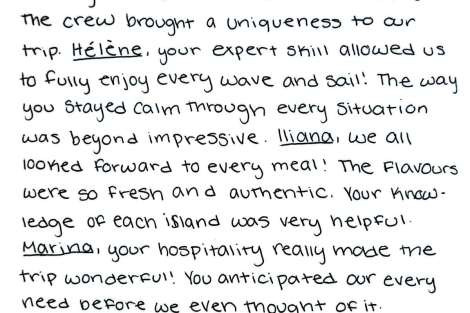 The crew brought a uniqueness to our
trip. Hélène, your expert skill allowed us
to fully enjoy every wave and sail! The way
you stayed calm through every situation
was beyond impressive. Iliana, we all
looked forward to every meal! The flavours
were so fresh and authentic. Your know-
ledge of each island was very helpful.
Marina, your hospitality really made the
trip wonderful! You anticipated our every
need before we even thought of it.